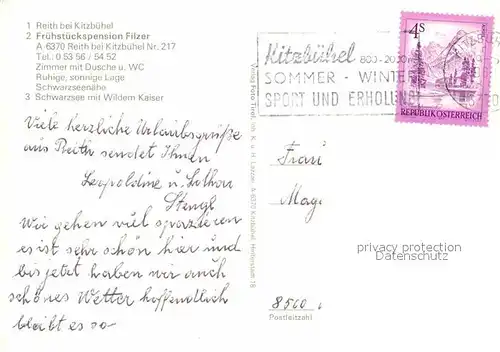 1 Reith bei Kitzbühel
2 Frühstückspension Filzer
A 6370 Reith bei Kitzbühel Nr. 217
Tel.: 0 53 56 / 54 52
Zimmer mit Dusche u. WC
Ruhige, sonnige Lage
Schwarzseenähe
3 Schwarzsee mit Wildem Kaiser
Viele herzliche Urlaubsgrüße
aus Reith sendet Ihnen
Leopoldine u. Lothar
Stengl
Wir gehen viel spazieren
es ist sehr schön hier und
bis jetzt haben wir auch
schönes Wetter hoffendlich
bleibt es so
Verlag Foto Tirol, Inh. K. u. H. Lazzeri, A 6370 Kitzbühel
Kitzbühel 800-2000 m
SOMMER - WINTER
SPORT UND ERHOLUNG
4S
REPUBLIK ÖSTERREICH
Frau
Mag
privacy protection
Datenschutz
8560
Postleitzahl